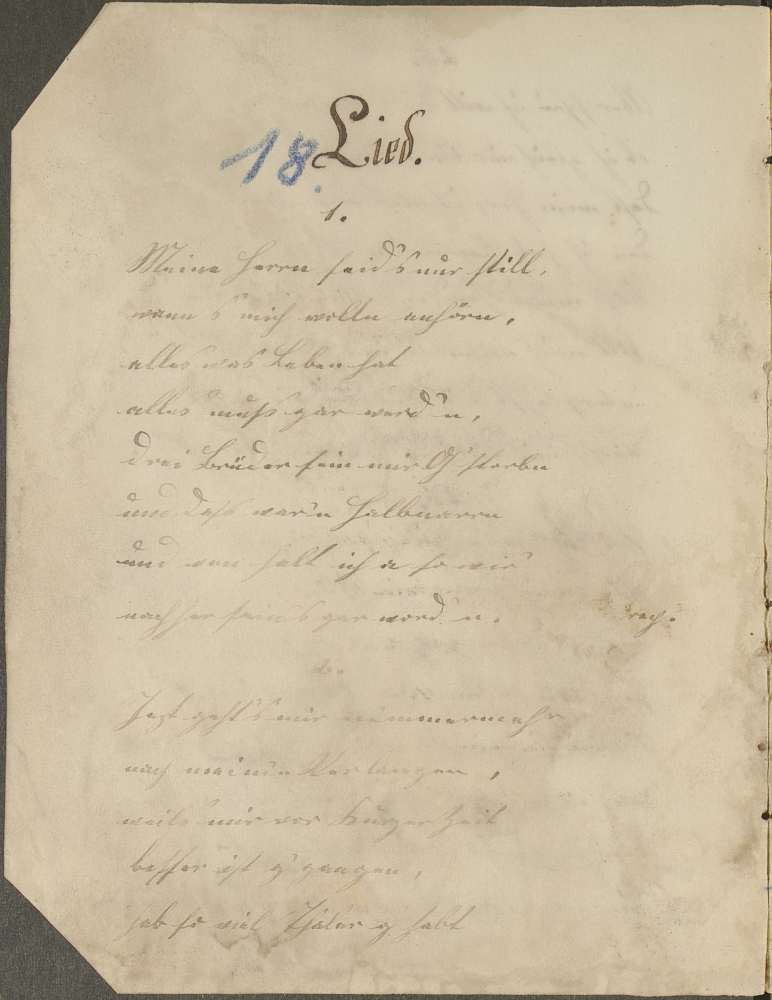 18. Lied.
1.
Meine Herrn seid's nur still,
wenn s' mich wolln anhörn,
alles was Leben hat
alles muß gar werd'n,
drei Brüder sein mir G'storbn
und dass war'n Halbnarrn
und
nachher sein s gar word n. rep:
2.
Jezt geht's mir nimmermehr
nach meinen Verlangen,
weils mir vor kurzer Zeit
besser ist g'gangen,
hab so viel Thäler g'habt